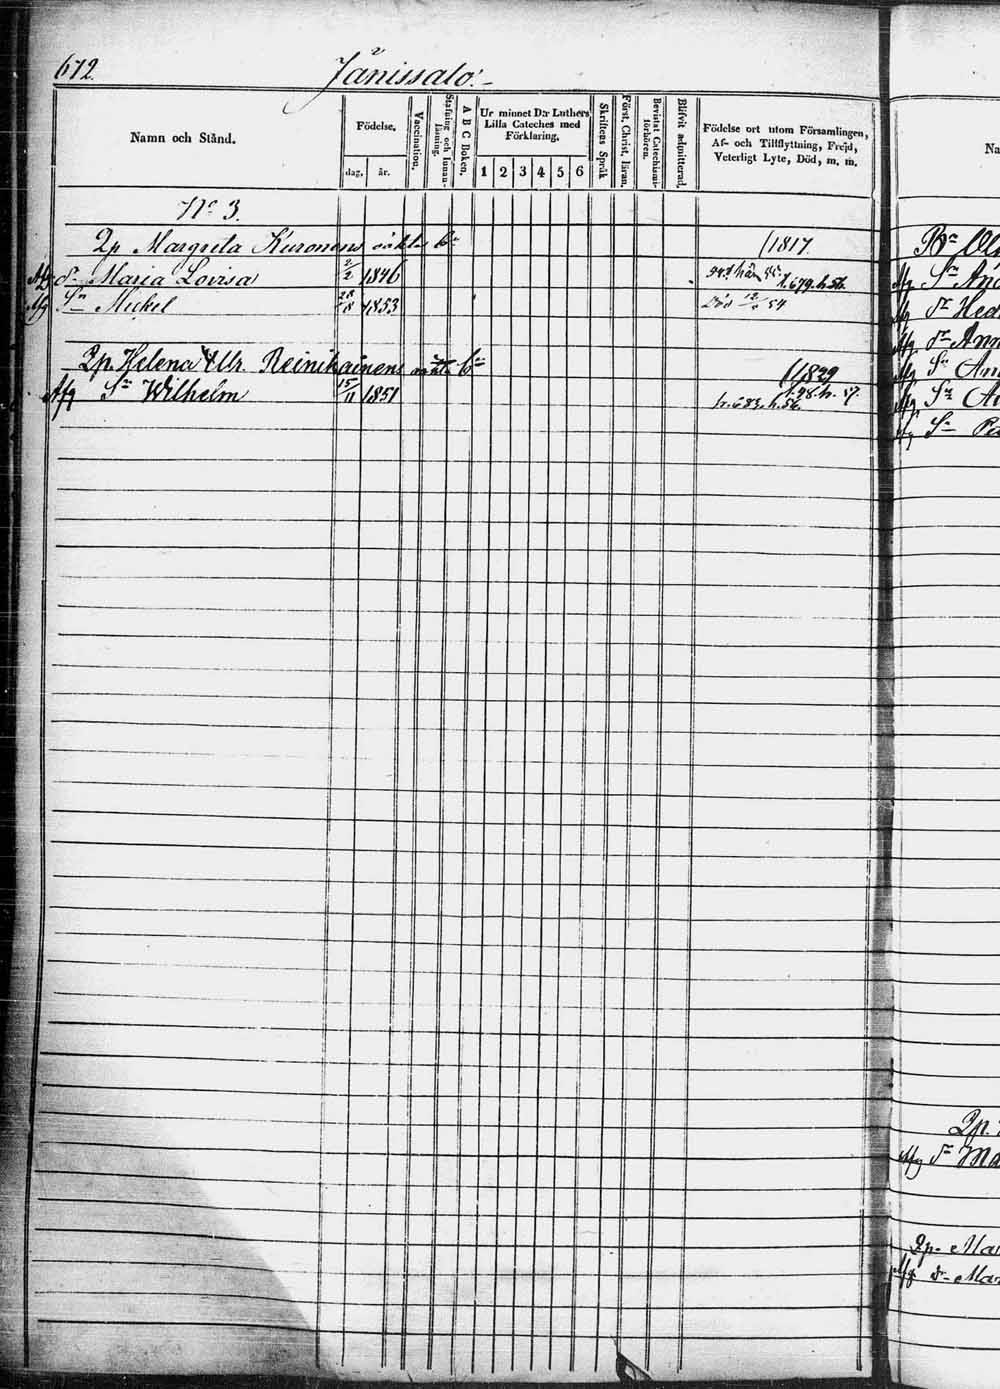 672.
Jänissalo.
Namn och Stånd.
Födelse.
dag. år.
Vaccination.
Stafning och Innanläsning.
A B C Boken.
Ur minnet D:r Luthers Lilla Cateches med Förklaring.
1 2 3 4 5 6
Skriftens Språk
Först. Christ. Läran.
Bevistat Catechismiförhören.
Blifvit admitterad.
Födelse ort utom Församlingen, Af- och Tillflyttning, Frejd, Veterligt Lyte, Död, m. m.
Na
No 3.
Qp. Margreta Kuronens oäkta Bn
1817.
Afg dr Maria Lovisa 2/2 1846
1.679.h.56.
Afg Sn Mickel 28/8 1853
Död 12/ 54
Qp. Helena Ulr. Reinikainens oäkta bn
1829
Afg Sn Wilhelm 15/11 1851
1.98.h.57.
fr.683.h.56.
Afg Sn And
Afg dr Hed
Afg dr Ann
Afg Sn And
Afg Sn
Afg Sn
Qp.
Afg dr Ma
Qp. Mar
Afg dr Mar